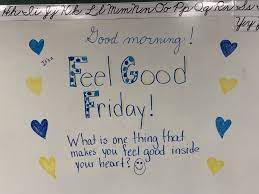 Hh Ii Jj Kk Ll Mm Nn Oo Pp Qq Rr Ss
Yy
Good morning!
Feel Good
Friday!
What is one thing that
makes you feel good inside
your heart?